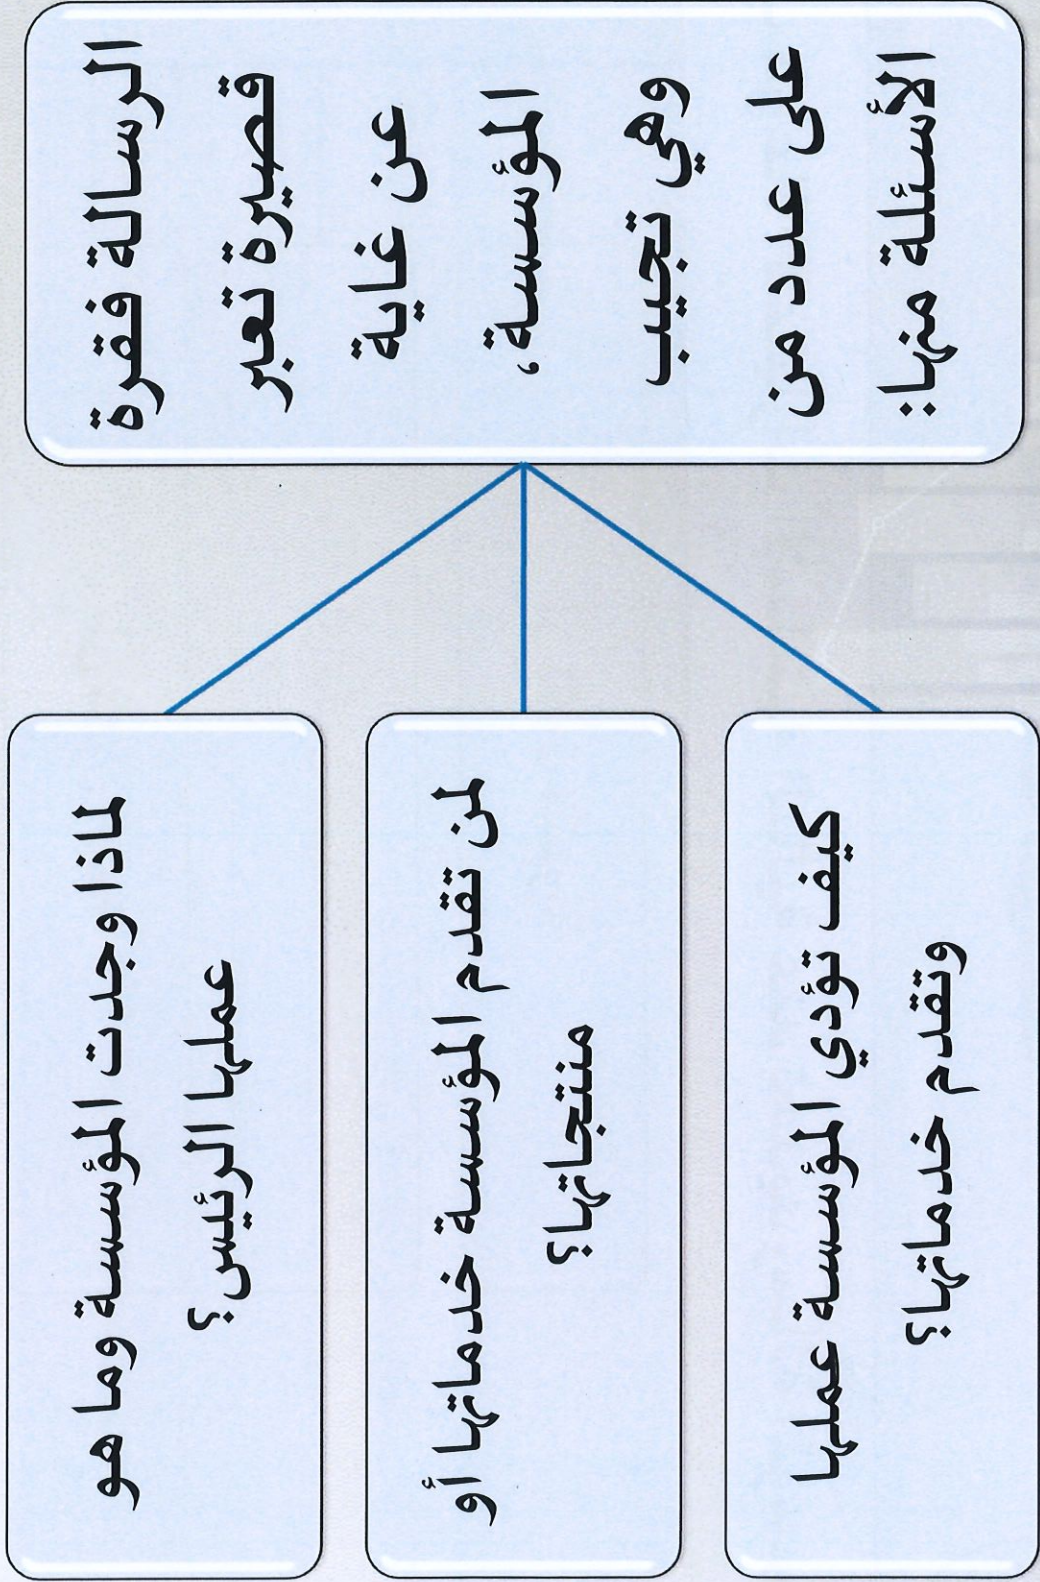 الرسالة فقرة
قصيرة تعبر
عن غاية
المؤسسة،
وهي تجيب
على عدد من
الأسئلة منها:
لماذا وجدت المؤسسة وما هو
عملها الرئيس؟
لمن تقدم المؤسسة خدماتها أو
منتجاتها؟
كيف تؤدي المؤسسة عملها
وتقدم خدماتها؟